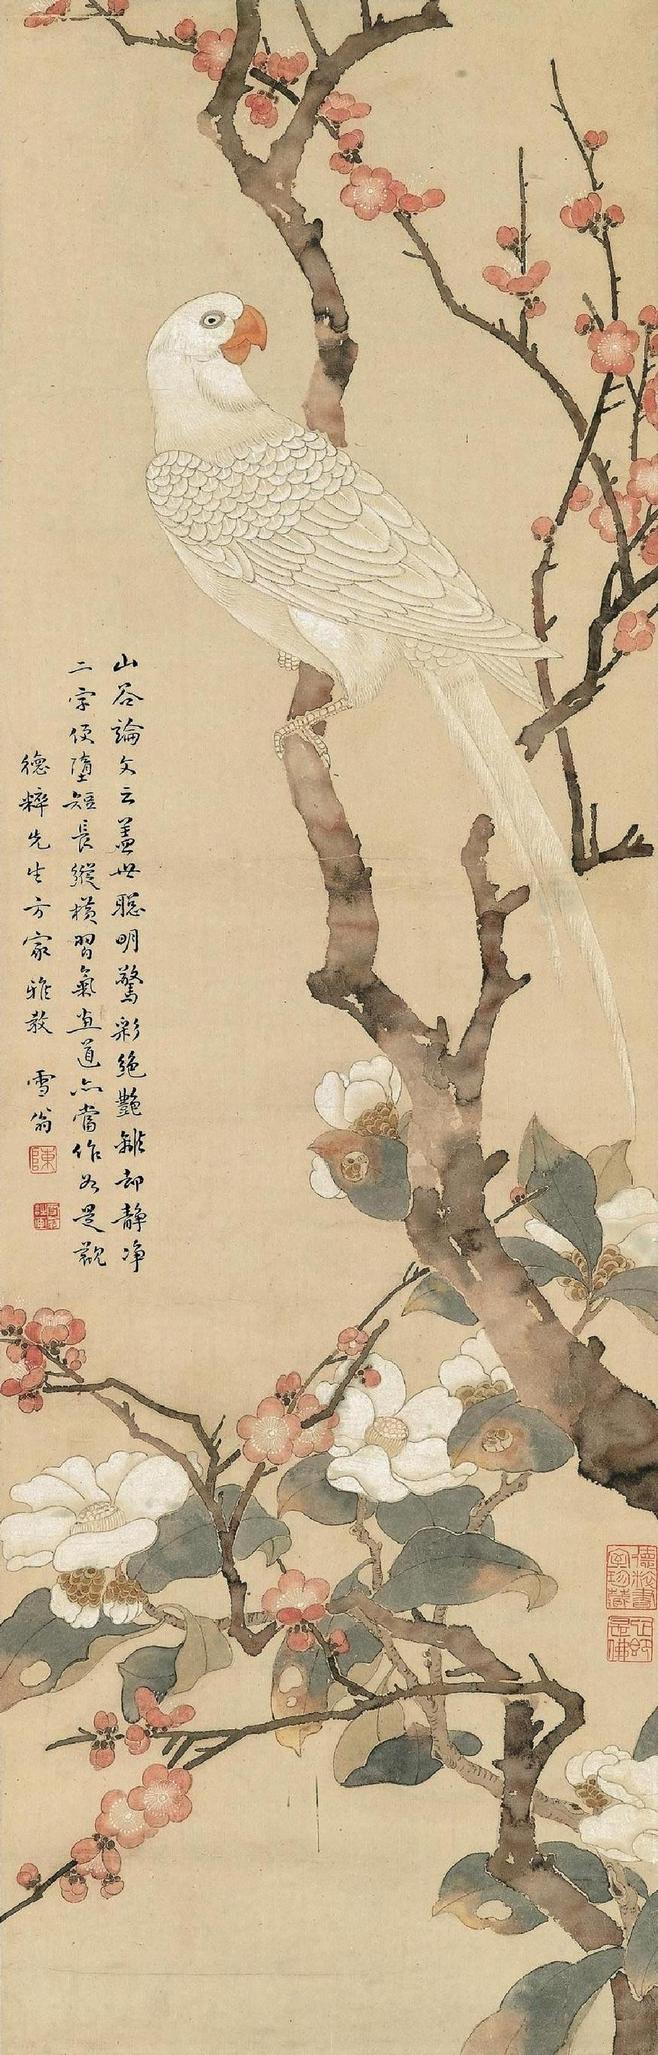 山谷論文云蓋世聰明驚彩絕艷離却靜淨
二字便墮短長縱橫習氣畫道亦當作如是觀
德粹先生方家雅教 雪翁
陳